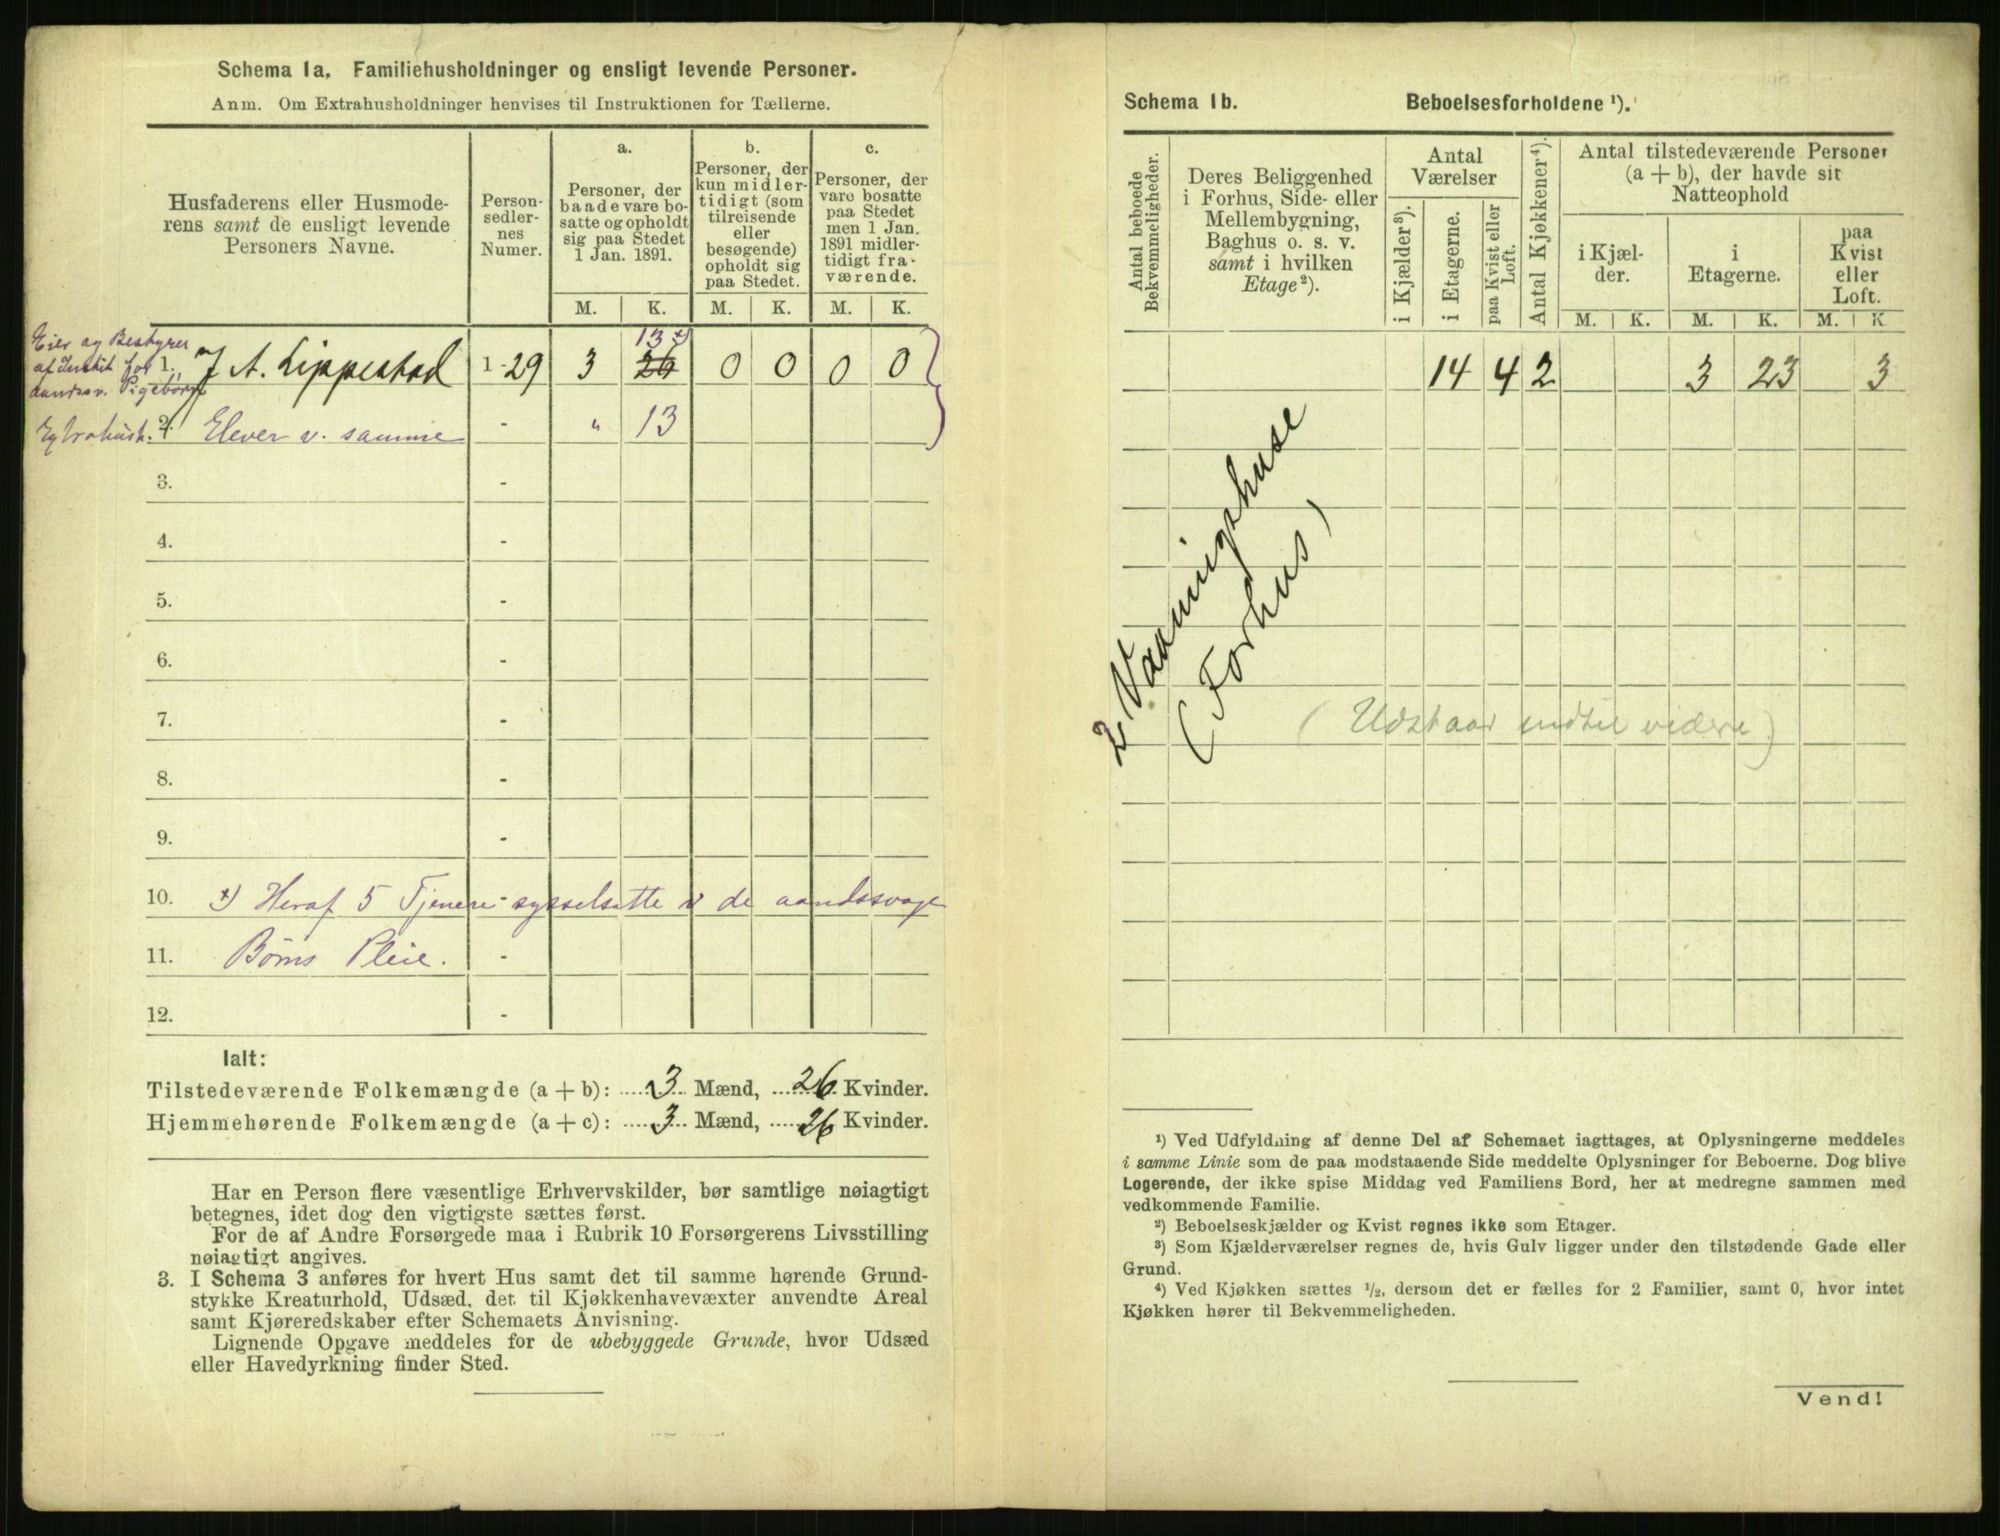 Schema 1a. Familiehusholdninger og ensligt levende Personer.
Anm. Om Extrahusholdninger henvises til Instruktionen for Tællerne.
Husfaderens eller Husmode-
rens samt de ensligt levende
Personers Navne.
Person-
sedler-
nes
Numer.
a.
Personer, der
baade vare bo-
satte og opholdt
sig paa Stedet
1 Jan. 1891.
b.
Personer, der
kun midler-
tidigt (som
tilreisende
eller
besøgende)
opholdt sig
paa Stedet.
c.
Personer, der
vare bosatte
paa Stedet
men 1 Jan.
1891 midler-
tidigt fra-
værende.
M. K. M. K. M. K.
Eier og Bestyrer
af Instit for
aandssv. Pigebørn
13 x)
1. J A. Lippestad 1-29 3 26 0 0 0 0
Extrahush. 2. Elever v. samme - " 13
3. -
4. -
5. -
6. -
7. -
8. -
9. -
10. x) Heraf 5 Tjenere - sysselsatte v de aandssvage
11. Børns Pleie. -
12. -
Ialt:
Tilstedeværende Folkemængde (a + b): 3 Mænd, 26 Kvinder.
Hjemmehørende Folkemængde (a + c): 3 Mænd, 26 Kvinder.
Har en Person flere væsentlige Erhvervskilder, bør samtlige nøiagtigt
betegnes, idet dog den vigtigste sættes først.
For de af Andre Forsørgede maa i Rubrik 10 Forsørgerens Livsstilling
nøiagtigt angives.
3. I Schema 3 anføres for hvert Hus samt det til samme hørende Grund-
stykke Kreaturhold, Udsæd, det til Kjøkkenhavevæxter anvendte Areal
samt Kjøreredskaber efter Schemaets Anvisning.
Lignende Opgave meddeles for de ubebyggede Grunde, hvor Udsæd
eller Havedyrkning finder Sted.
Schema 1b. Beboelsesforholdene ¹).
Antal beboede
Bekvemmeligheder.
Deres Beliggenhed
i Forhus, Side- eller
Mellembygning,
Baghus o. s. v.
samt i hvilken
Etage ²).
Antal
Værelser
i Kjælder ³).
i Etagerne.
paa Kvist eller
Loft.
Antal Kjøkkener ⁴).
Antal tilstedeværende Personer
(a + b), der havde sit
Natteophold
i Kjæl-
der.
i
Etagerne.
paa
Kvist
eller
Loft.
M. K. M. K. M. K
14 4 2 3 23 3
2 Vaaningshuse
(Forhus)
(Udstaar indtil videre)
¹) Ved Udfyldning af denne Del af Schemaet iagttages, at Oplysningerne meddeles
i samme Linie som de paa modstaaende Side meddelte Oplysninger for Beboerne. Dog blive
Logerende, der ikke spise Middag ved Familiens Bord, her at medregne sammen med
vedkommende Familie.
²) Beboelseskjælder og Kvist regnes ikke som Etager.
³) Som Kjælderværelser regnes de, hvis Gulv ligger under den tilstødende Gade eller
Grund.
⁴) Ved Kjøkken sættes ½, dersom det er fælles for 2 Familier, samt 0, hvor intet
Kjøkken hører til Bekvemmeligheden.
Vend!